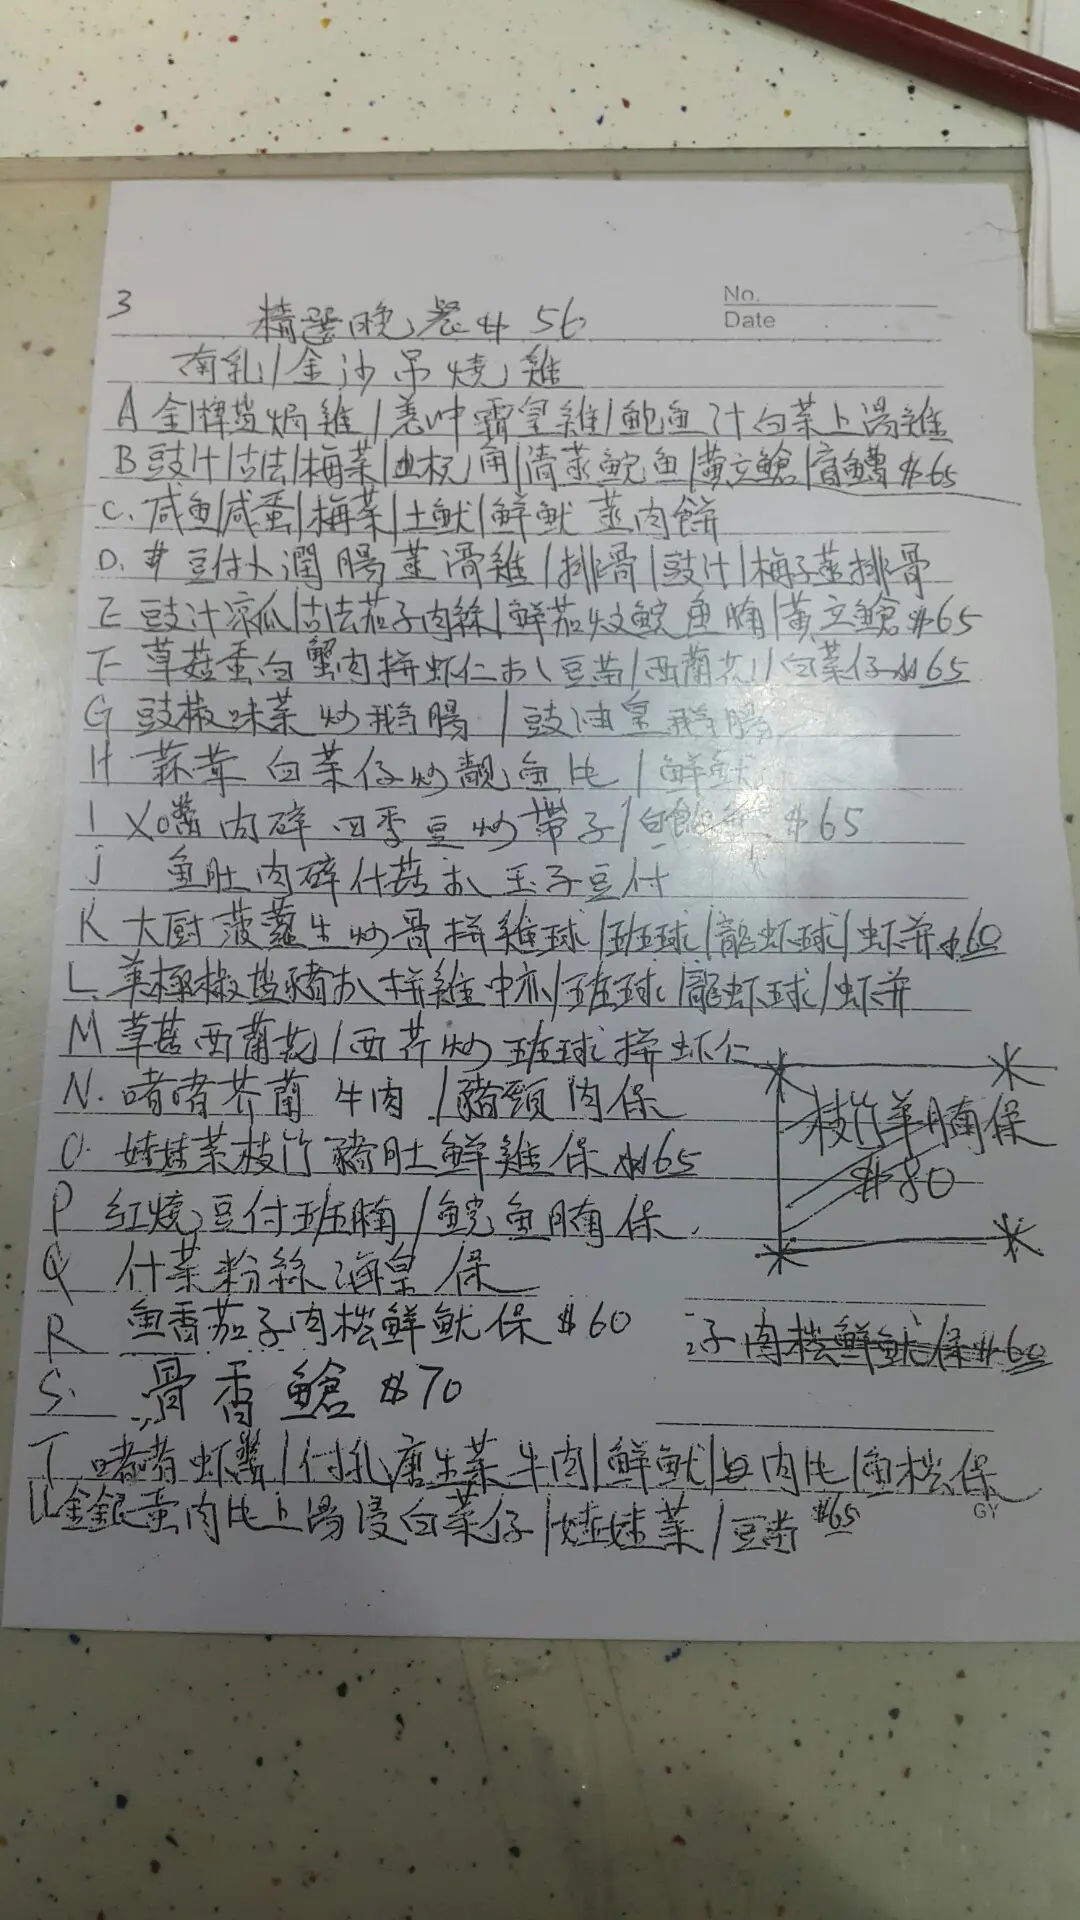 No.
Date
3
精選晚餐 $56
南乳/金沙吊燒雞
A 金牌鹽焗雞/姜沖霸皇雞/鮑魚汁白菜上湯雞
B 豉汁/古法/梅菜/角/清蒸鯇魚/黃立鯧/盲鰽 $65
C. 咸魚/咸蛋/梅菜/土魷/鮮魷 蒸肉餅
D. # 豆付卜潤腸蒸滑雞/排骨/豉汁/梅子蒸排骨
E 豉汁凉瓜/古法茄子肉絲/鮮茄炆鯇魚腩/黃立鯧 $65
F 草菇蛋白蟹肉拼虾仁扒豆苗/西蘭花/白菜仔 $65
G 豉椒味菜炒鵝腸/豉油皇鵝腸
H 蒜茸白菜仔炒靚魚片/鮮魷
I XO醬肉碎四季豆炒帶子/ $65
j 魚肚肉碎什菇扒玉子豆付
K 大厨菠蘿生炒骨拼雞球/班球/龍虾球/虾并 $60
L. 美極椒鹽豬扒拼雞中亦/班球/龍虾球/虾并
M 草菇西蘭花/西芹炒班球拼虾仁
N. 啫啫芥蘭牛肉/豬頸肉保
枝竹羊腩保
$80
O. 娃娃菜枝竹豬肚鮮雞保 $65
P 紅燒豆付班腩/鯇魚腩保
Q 什菜粉絲海皇保
R 魚香茄子肉松鮮魷保 $60
子肉松鮮魷保 $60
S. 骨香鯧 $70
T 啫啫虾醬/付乳唐生菜牛肉/鮮魷/肉片/魚松保
GY
U 金銀蛋肉片上湯浸白菜仔/娃娃菜/豆苗 $65